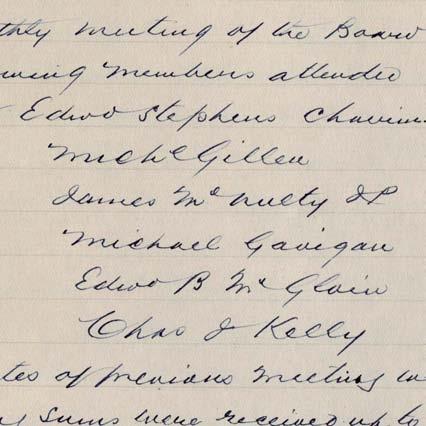 thly meeting of the Board
owing members attended
Edwd Stephens Chairm
Michl Gillen
James McNulty JP
Michael Gavigan
Edwd B McGloin
Chas J Kelly
tes of previous meeting w
ng sums were received up to